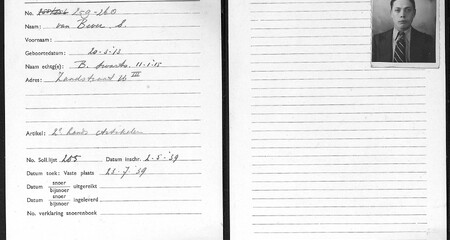 No. 259-260
Naam: van S.
Voornaam:
Geboortedatum: 20-5-13
Naam echtg(e): B. 11-1-15
Adres: Zandstraat III
Artikel: 2e hands
No. Soll.lijst 285 Datum inschr. 2-5-'39
Datum zoek: Vaste plaats 25-7-'39
Datum snoer bijsnoer uitgereikt
Datum snoer bijsnoer ingeleverd
No. verklaring snoerenboek